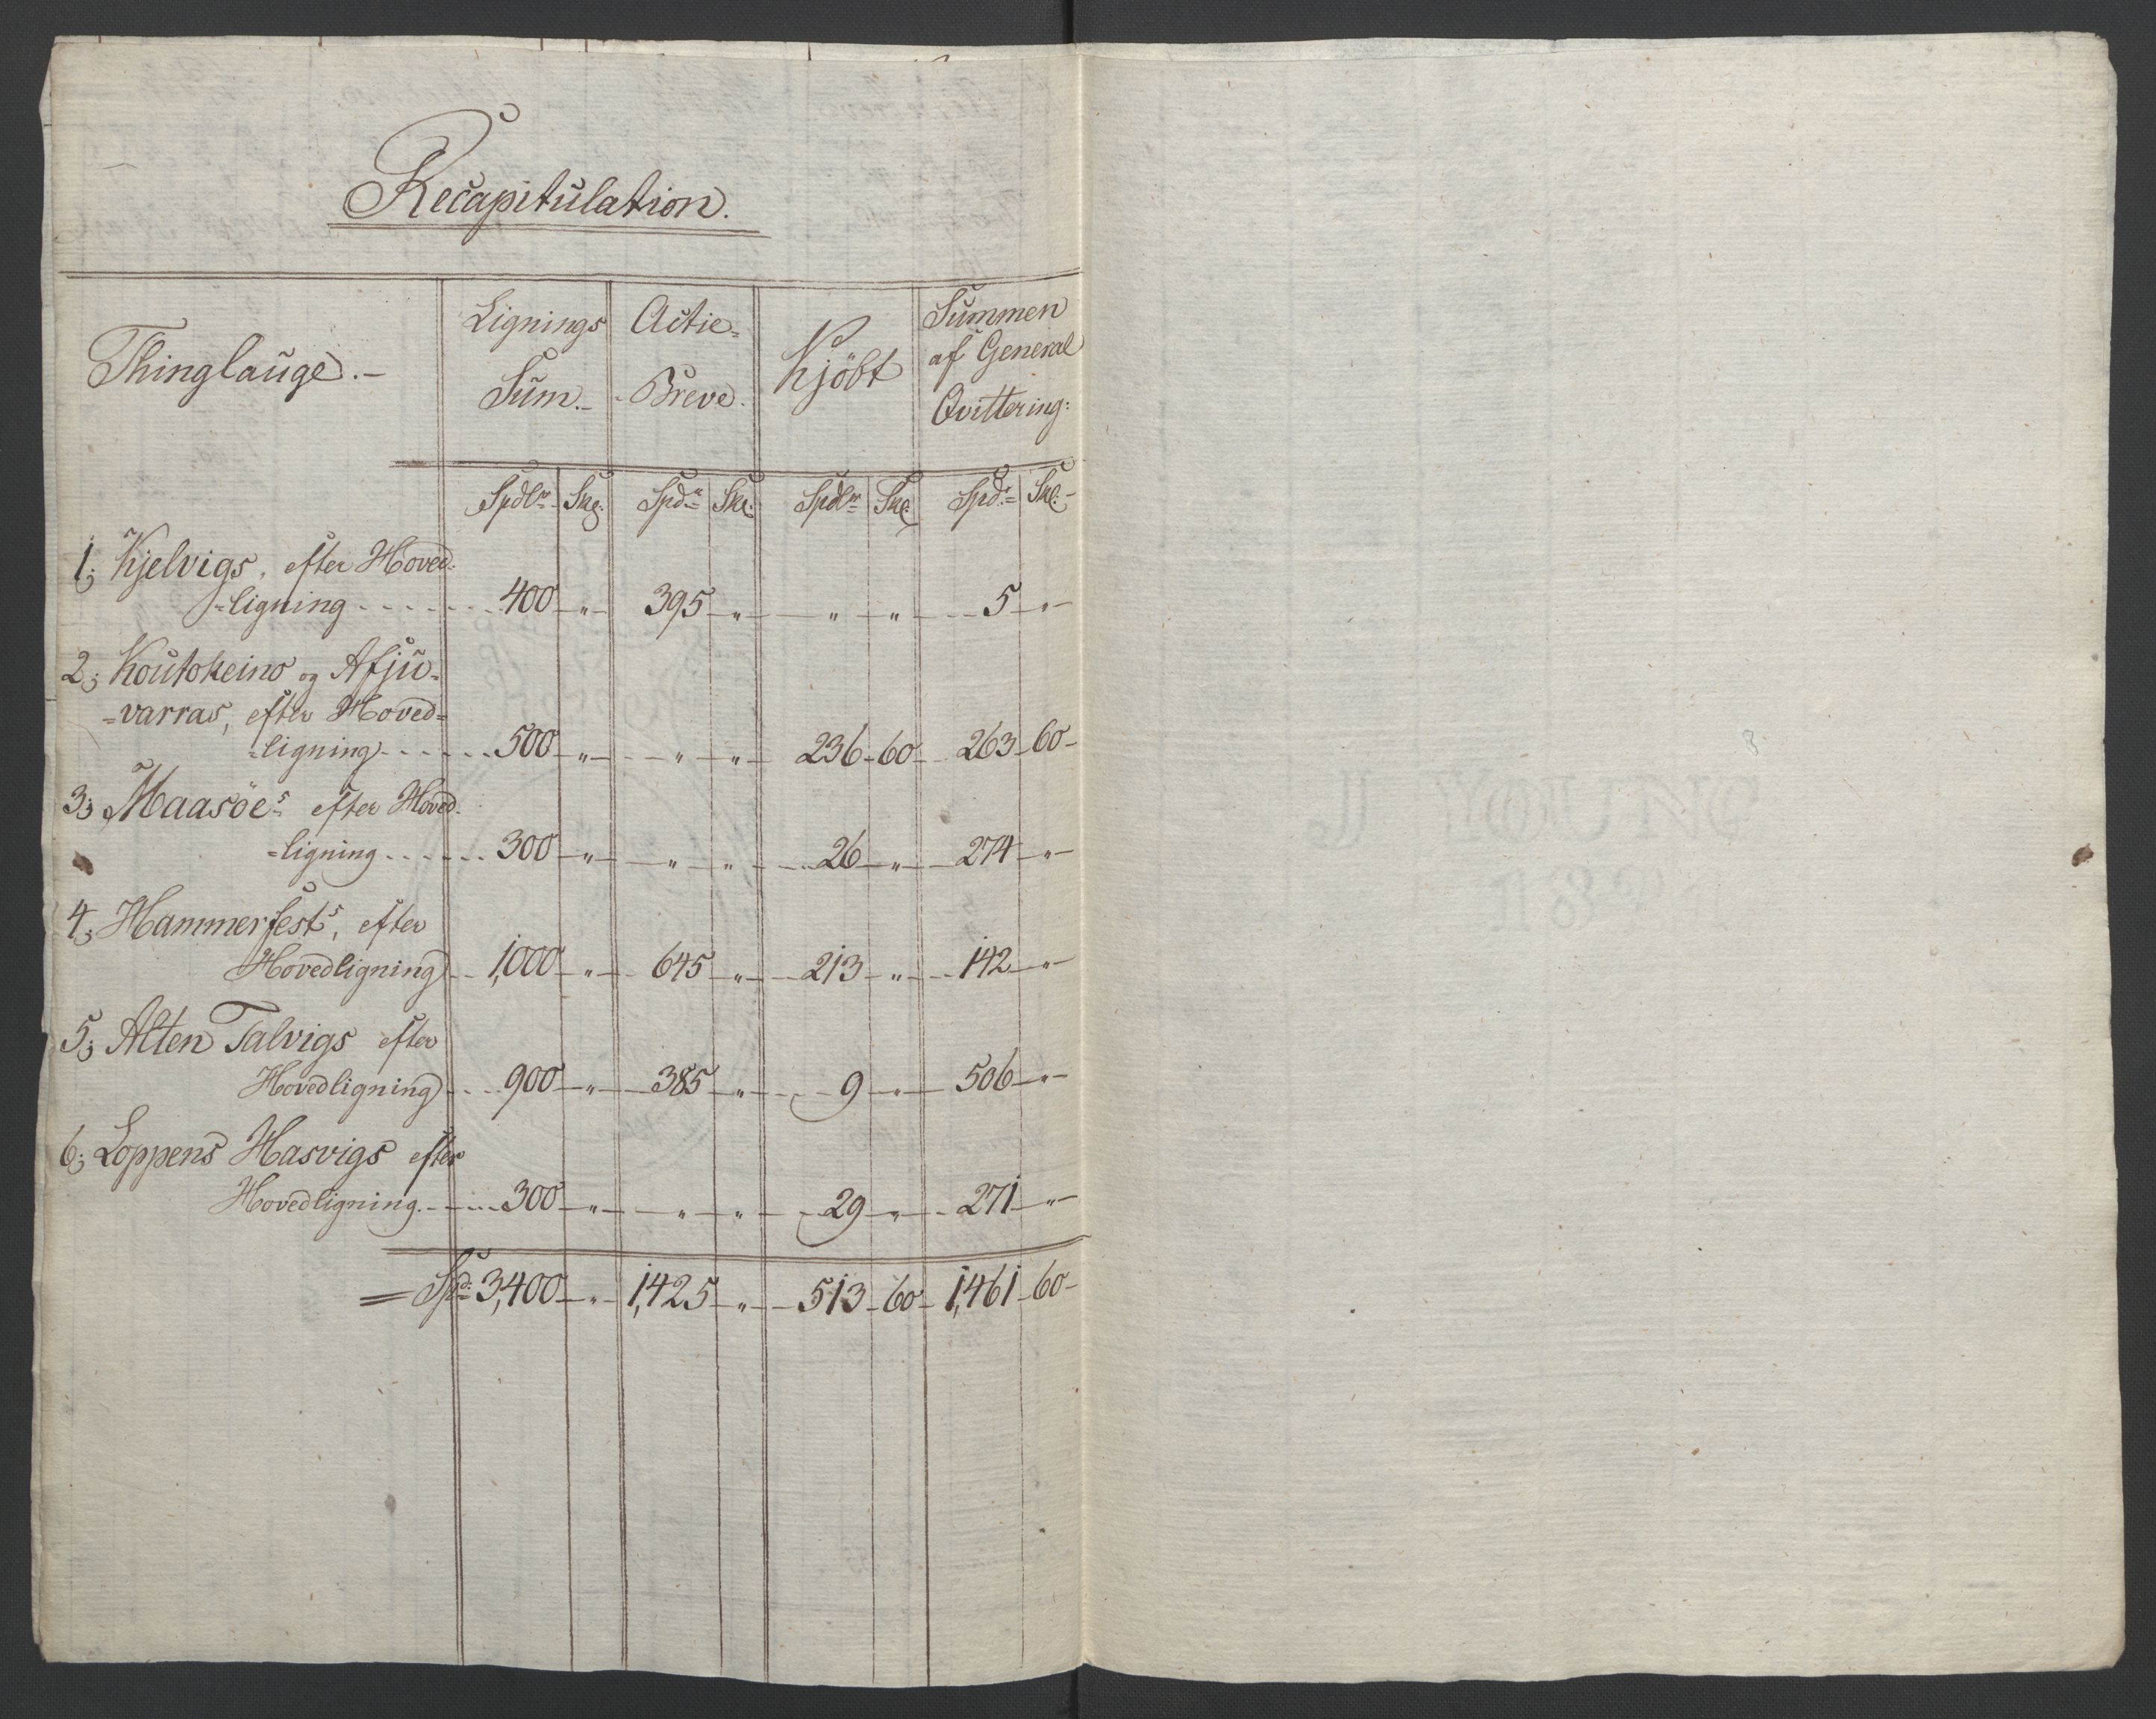 Recapitulation.
Thinglauge.- Lignings Sum.- Actie- Breve. Kjöbt Summen af General Qvittering:
Spdlr Skg: Spdr Skl: Spdlr Skl: Spdr Skl:-
1; Kjelvigs, efter Hoved-
=ligning . . . . . . 400 - „ - 395 - „ - - „ - „ - - 5 - „ -
2; Koutokeino og Afju-
=varras, efter Hoved=
=ligning . . . . . . 500 - „ - - „ - „ - 236 - 60 - 263 - 60 -
3; Maasöes efter Hoved-
=ligning . . . . . . 300 - „ - - „ - „ - 26 - „ - 274 - „ -
4; Hammerfests, efter
Hovedligning - - 1,000 - „ - 645 - „ - 213 - „ - 142 - „ -
5; Alten Talvigs efter
Hovedligning . . . 900 - „ - 385 - „ - 9 - „ - 506 - „ -
6; Loppens Hasvigs efter
Hovedligning. - . . . 300 - „ - - „ - „ - 29 - „ - 271 - „ -
= Spd: 3,400 - „ - 1,425 - „ - 513 - 60 - 1,461 - 60 -
J YOUNG